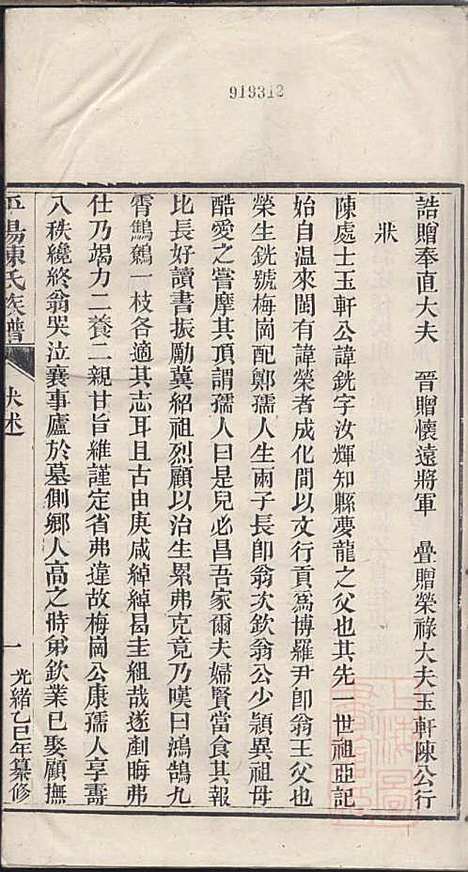 919312
誥贈奉直大夫　晉贈懷遠將軍　疊贈榮祿大夫玉軒陳公行
狀
陳處士玉軒公諱銑字汝輝知縣夢龍之父也其先一世祖亞記
始自温來閩有諱榮者成化間以文行貢爲博羅尹卽翁王父也
榮生銑號梅崗配鄭孺人生兩子長卽翁次欽翁公少頴異祖母
酷愛之嘗摩其頂謂孺人曰是兒必昌吾家爾夫婦賢當食其報
比長好讀書振勵冀紹祖烈顧以治生累弗克竟乃嘆曰鴻鵠九
霄鷦鷯一枝各適其志耳且古由庚咸綽綽曷圭組哉遂剷晦弗
仕乃竭力二養二親甘旨維謹定省弗違故梅崗公康孺人享壽
八秩纔終翁哭泣襄事廬於墓側鄉人高之時第欽業已娶顧撫
平陽陳氏族譜
述
一
光緒乙巳年纂修
上海圖書館藏